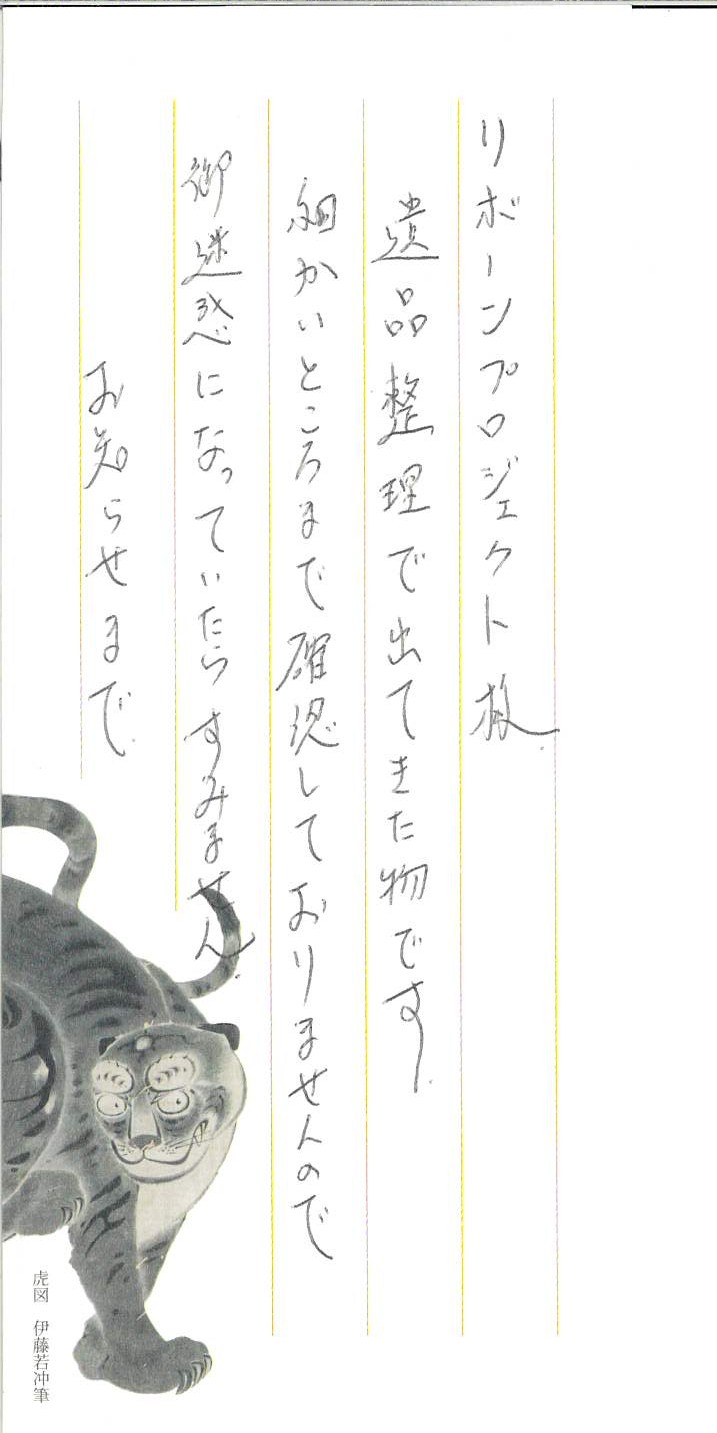 リボーンプロジェクト様
遺品整理で出てきた物です.
細かいところまで確認しておりませんので
御迷惑になっていたらすみません.
お知らせまで.
虎図　伊藤若冲筆